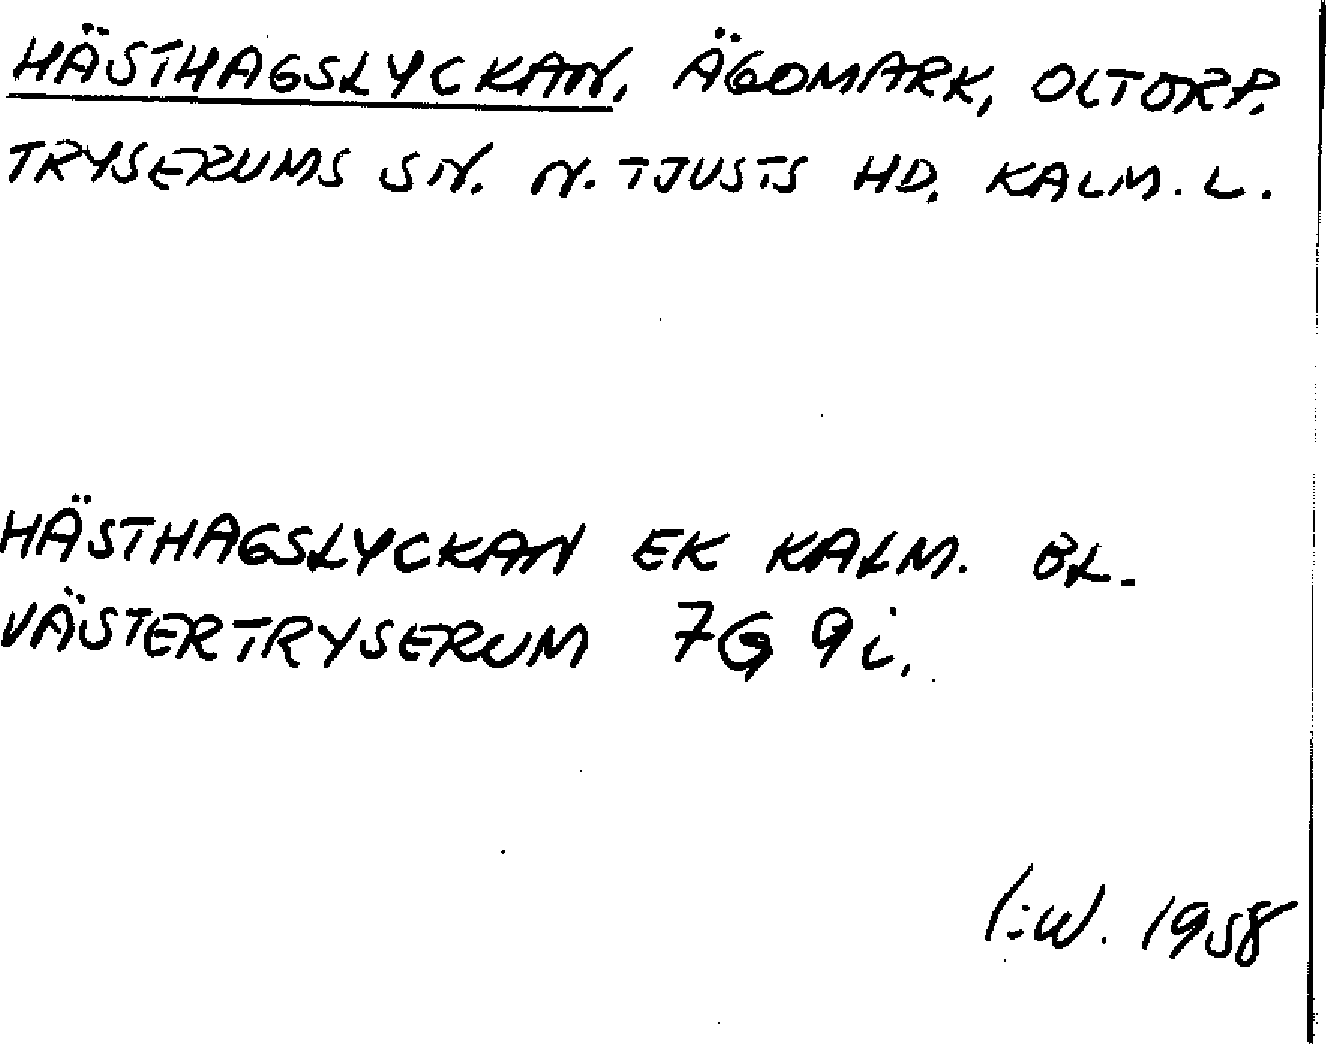 HÄSTHAGSLYCKAN, ÄGOMARK, OLTORP.
TRYSERUMS SN. N. TJUSTS HD. KALM. L.
HÄSTHAGSLYCKAN EK KALM. BL.
VÄSTERTRYSERUM 7G 9i.
1958